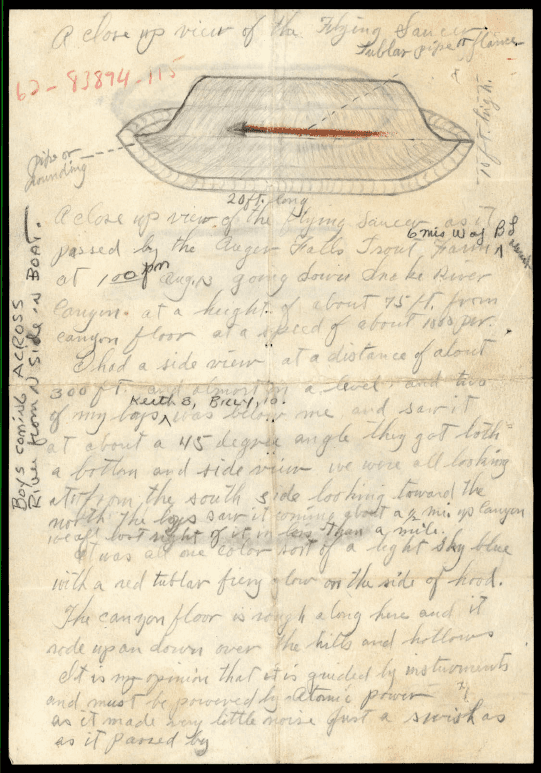 A close up view of the Flying Saucer
Tublar pipe or flance
62-83894-115
10 ft. high.
pipe or
rounding
20 ft. long
A close up view of the Flying Saucer as it
6 mis W of
passed by the Auger Falls Trout Farm
at 1 00 pm Aug. 13 going down Snake River
Canyon. at a height of about 75 ft. from
canyon floor at a speed of about 1000 per.
I had a side view at a distance of about
300 ft. and almost in a level and two
Keith 8, Billy, 10.
of my boys was below me and saw it
at about a 45 degree angle they got both
a bottom and side view we were all looking
at it from the south side looking toward the
north The boys saw it coming about a ½ mi. up canyon
we all lost sight of it in less than a mile.
It was all one color sort of a light sky blue
with a red tublar fiery glow on the side of hood.
The canyon floor is rough along here and it
rode up an down over the hills and hollows
It is my opinion that it is guided by instruments
and must be powered by Atomic power
as it made very little noise Just a swish as
as it passed by
BOYS COMING ACROSS
River from N Side in BOAT.